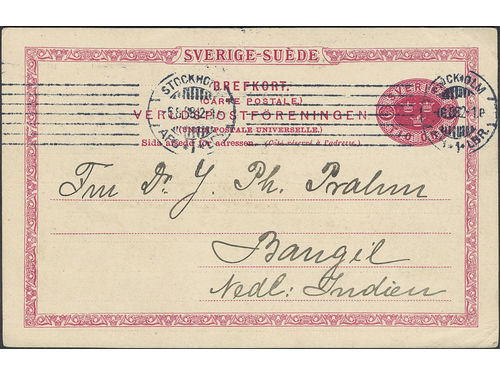 SVERIGE-SUÈDE
BREFKORT.
(CARTE POSTALE.)
VERLDSPOSTFÖRENINGEN
(UNION POSTALE UNIVERSELLE.)
Sida afsedd för adressen. (Côté réservé à l'adresse.)
SVERIGE
TIO ÖRE
STOCKHOLM
STOCKHOLM
Fru Dr. J. Ph. Prahm
Bangil
Nedl: Indien